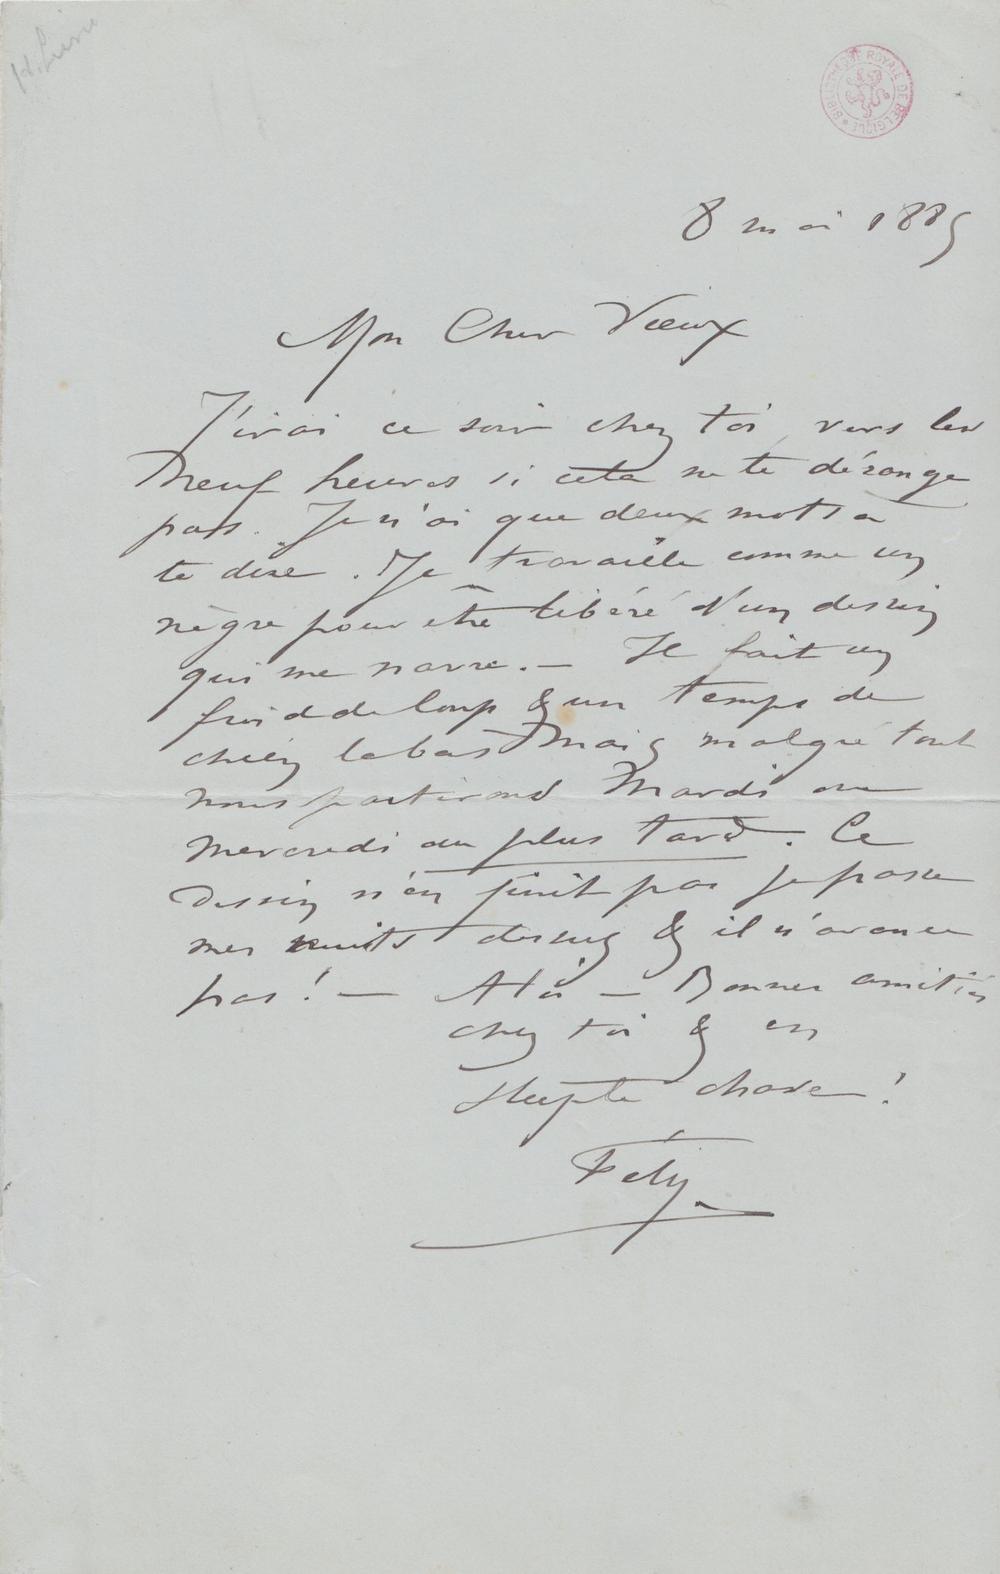 H. Liesse
BIBLIOTHÈQUE ROYALE DE BELGIQUE
8 mai 1885
Mon Cher Vieux
J'irai ce soir chez toi vers les
Neuf heures si cela ne te dérange
pas. Je n'ai que deux mots a
te dire. Je travaille comme un
nègre pour être libéré d'un dessin
qui me navre. — Il fait un
froid de loup & un temps de
chien labas Mais malgré tout
nous partirons Mardi ou
mercredi au plus tard. Ce
Dessin n'en finit pas je passe
mes nuits dessus & il n'avance
pas ! — A toi — Bonnes amitiés
chez toi & en
chose !
Fély